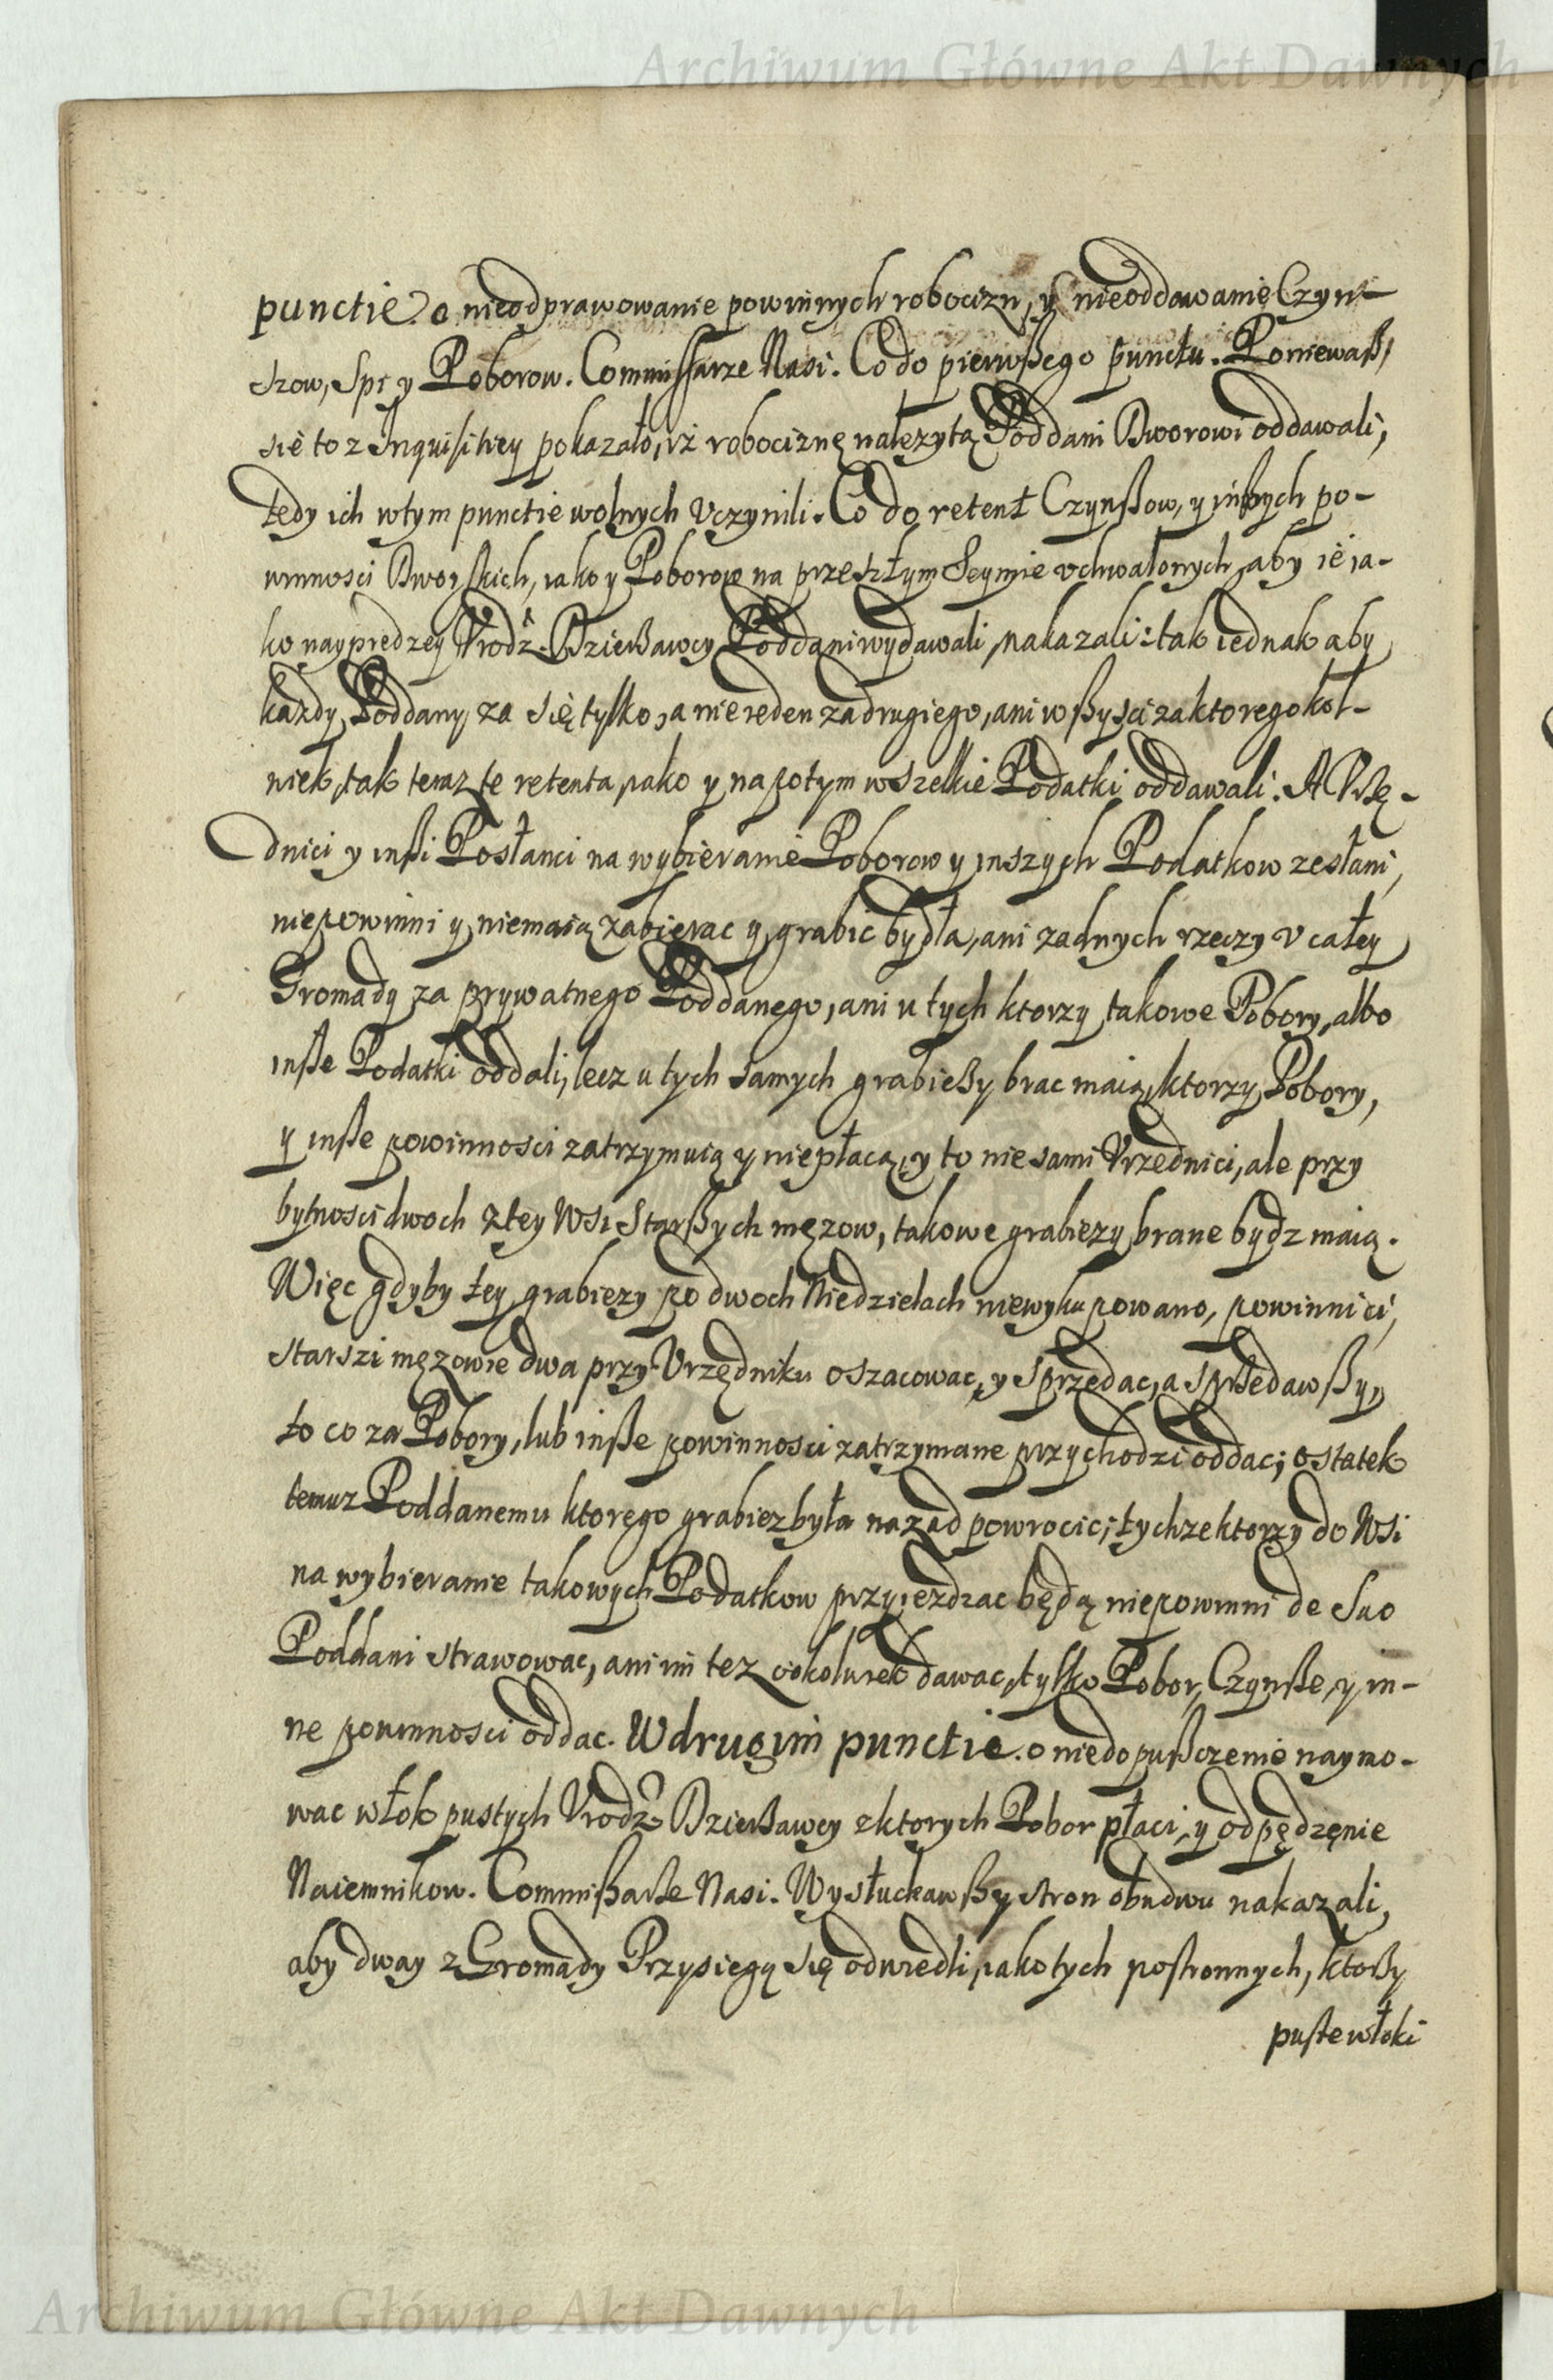 Archiwum Główne Akt Dawnych
punctie. o nieodprawowanie powinnych robocizn, y nieoddawanie Czyn-
szow, Spi: y Poborow. Commissarze Nasi. Co do pierwßego punctu. Poniewaß,
sie to z Inquisitiey pokazało, iż robociznę należytą Poddani Dworowi oddawali,
tedy ich w tym punctie wolnych vczynili. Co do retent Czynßow, y inßych po-
winnosci Dworskich, iako y Poborow na przeszłym Seymie vchwałonych, aby ie ia-
ko nayprędzey Vrodz: Dzierßawcy Poddani wydawali, nakazali: tak iednak aby
każdy Poddany za się tylko, a nie ieden za drugiego, ani wßysci za ktoregokol-
niek, tak teraz te retenta, iako y napotym wszelkie Podatki oddawali. A Vrzę-
dnici y inßi Posłanci na wybieranie Poborow y inszych Podatkow zesłani,
niepowinni y niemaią zabierac y grabic bydła, ani zadnych rzeczy v całey
Gromady za prywatnego Poddanego, ani u tych ktorzy takowe Pobory, albo
inße Podatki oddali, lecz u tych samych grabießy brac maią, ktorzy Pobory,
y inße powinnosci zatrzymuią y niepłacą, y to nie sami Vrzednici, ale przy
bytnosci dwoch z tey Wsi Starßych męzow, takowe grabiezy brane bydz maią.
Więc gdyby tey grabiezy po dwoch Niedzielach niewykupowano, powinni ci,
starszi męzowie dwa przy Vrzędniku oszacowac, y sprzedac, a sprzedawßy,
to co za Pobory, lub inße powinnosci zatrzymane przychodzi oddac; ostatek
temuz Poddanemu ktorego grabiez była nazad powrocic; tychze ktorzy do Wsi
na wybieranie takowych Podatkow przyiezdzac będą niepowinni de Suo
Poddani strawowac, ani im tez cokolwiek dawac, tylko Pobor, Czynße, y in-
ne powinnosci oddac. W drugim punctie. o niedopußczenie naymo-
wac włok pustych Vrodz: Dzierßawcy z ktorych Pobor płaci, y odpędzęnie
Naiemnikow. Commißarße Nasi. Wysłuchawßy stron obudwu nakazali,
aby dway z Gromady Przysięgą się odwiedli, iako tych postronnych, ktorßy
puste włoki
Archiwum Główne Akt Dawnych